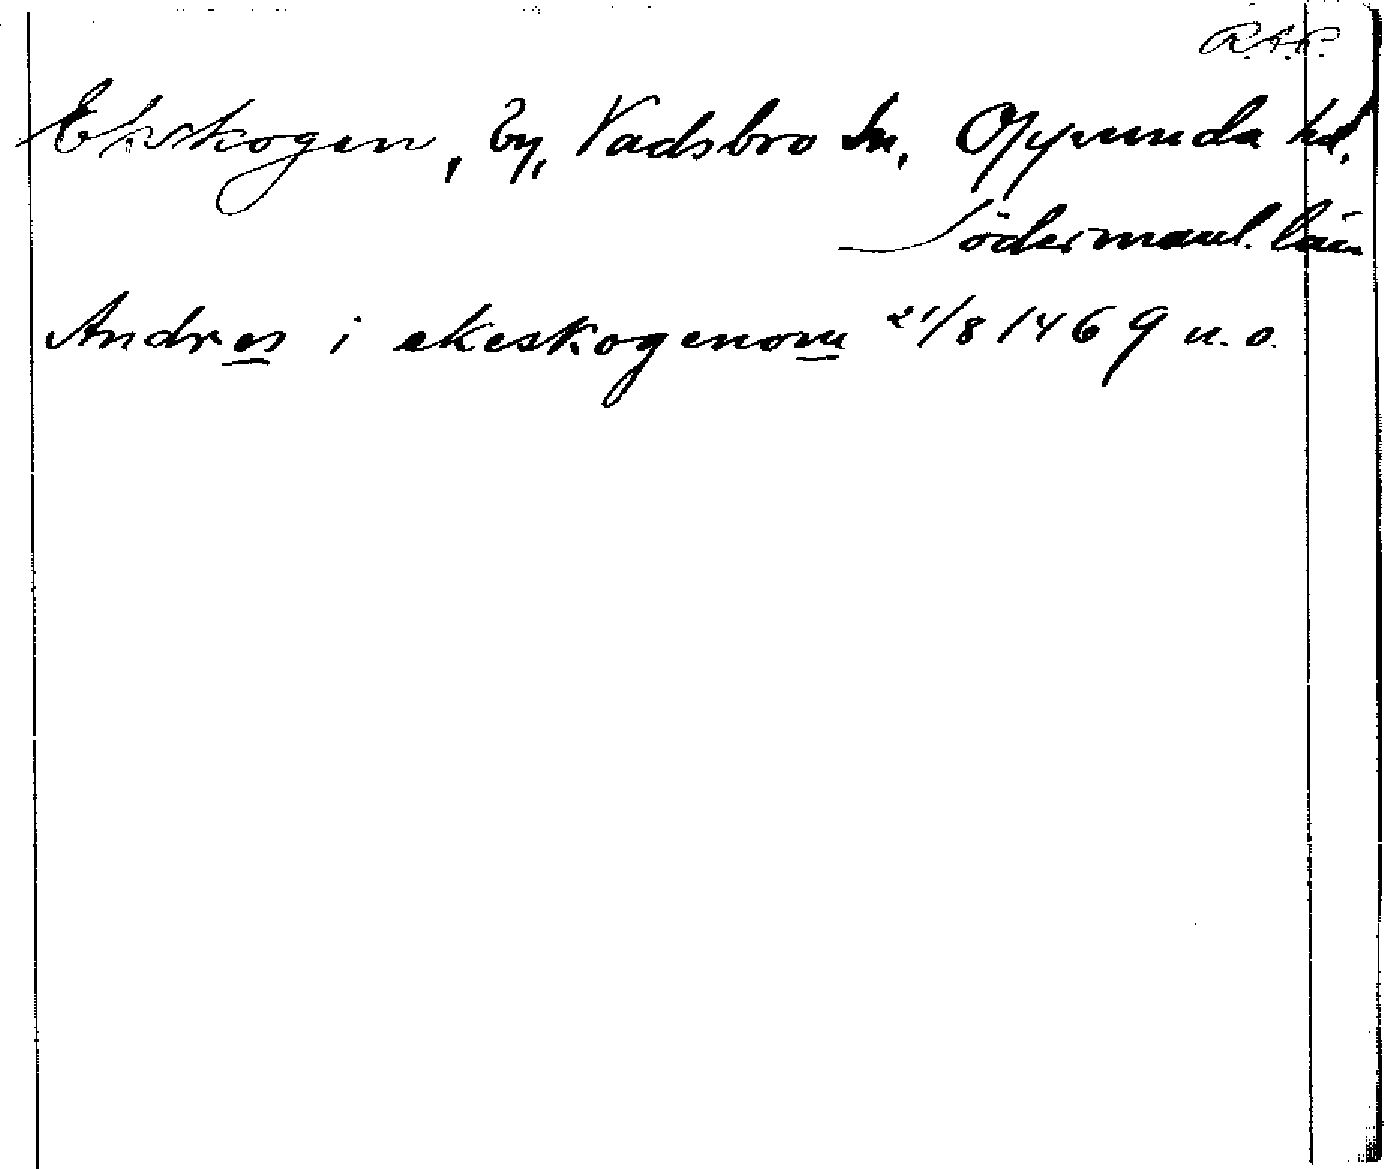 R.A.P.
Ekskogen, by, Vadsbro sn, Oppunda hd,
Södermanl. län
Andres i ekeskogenom 21/8 1469 u. o.